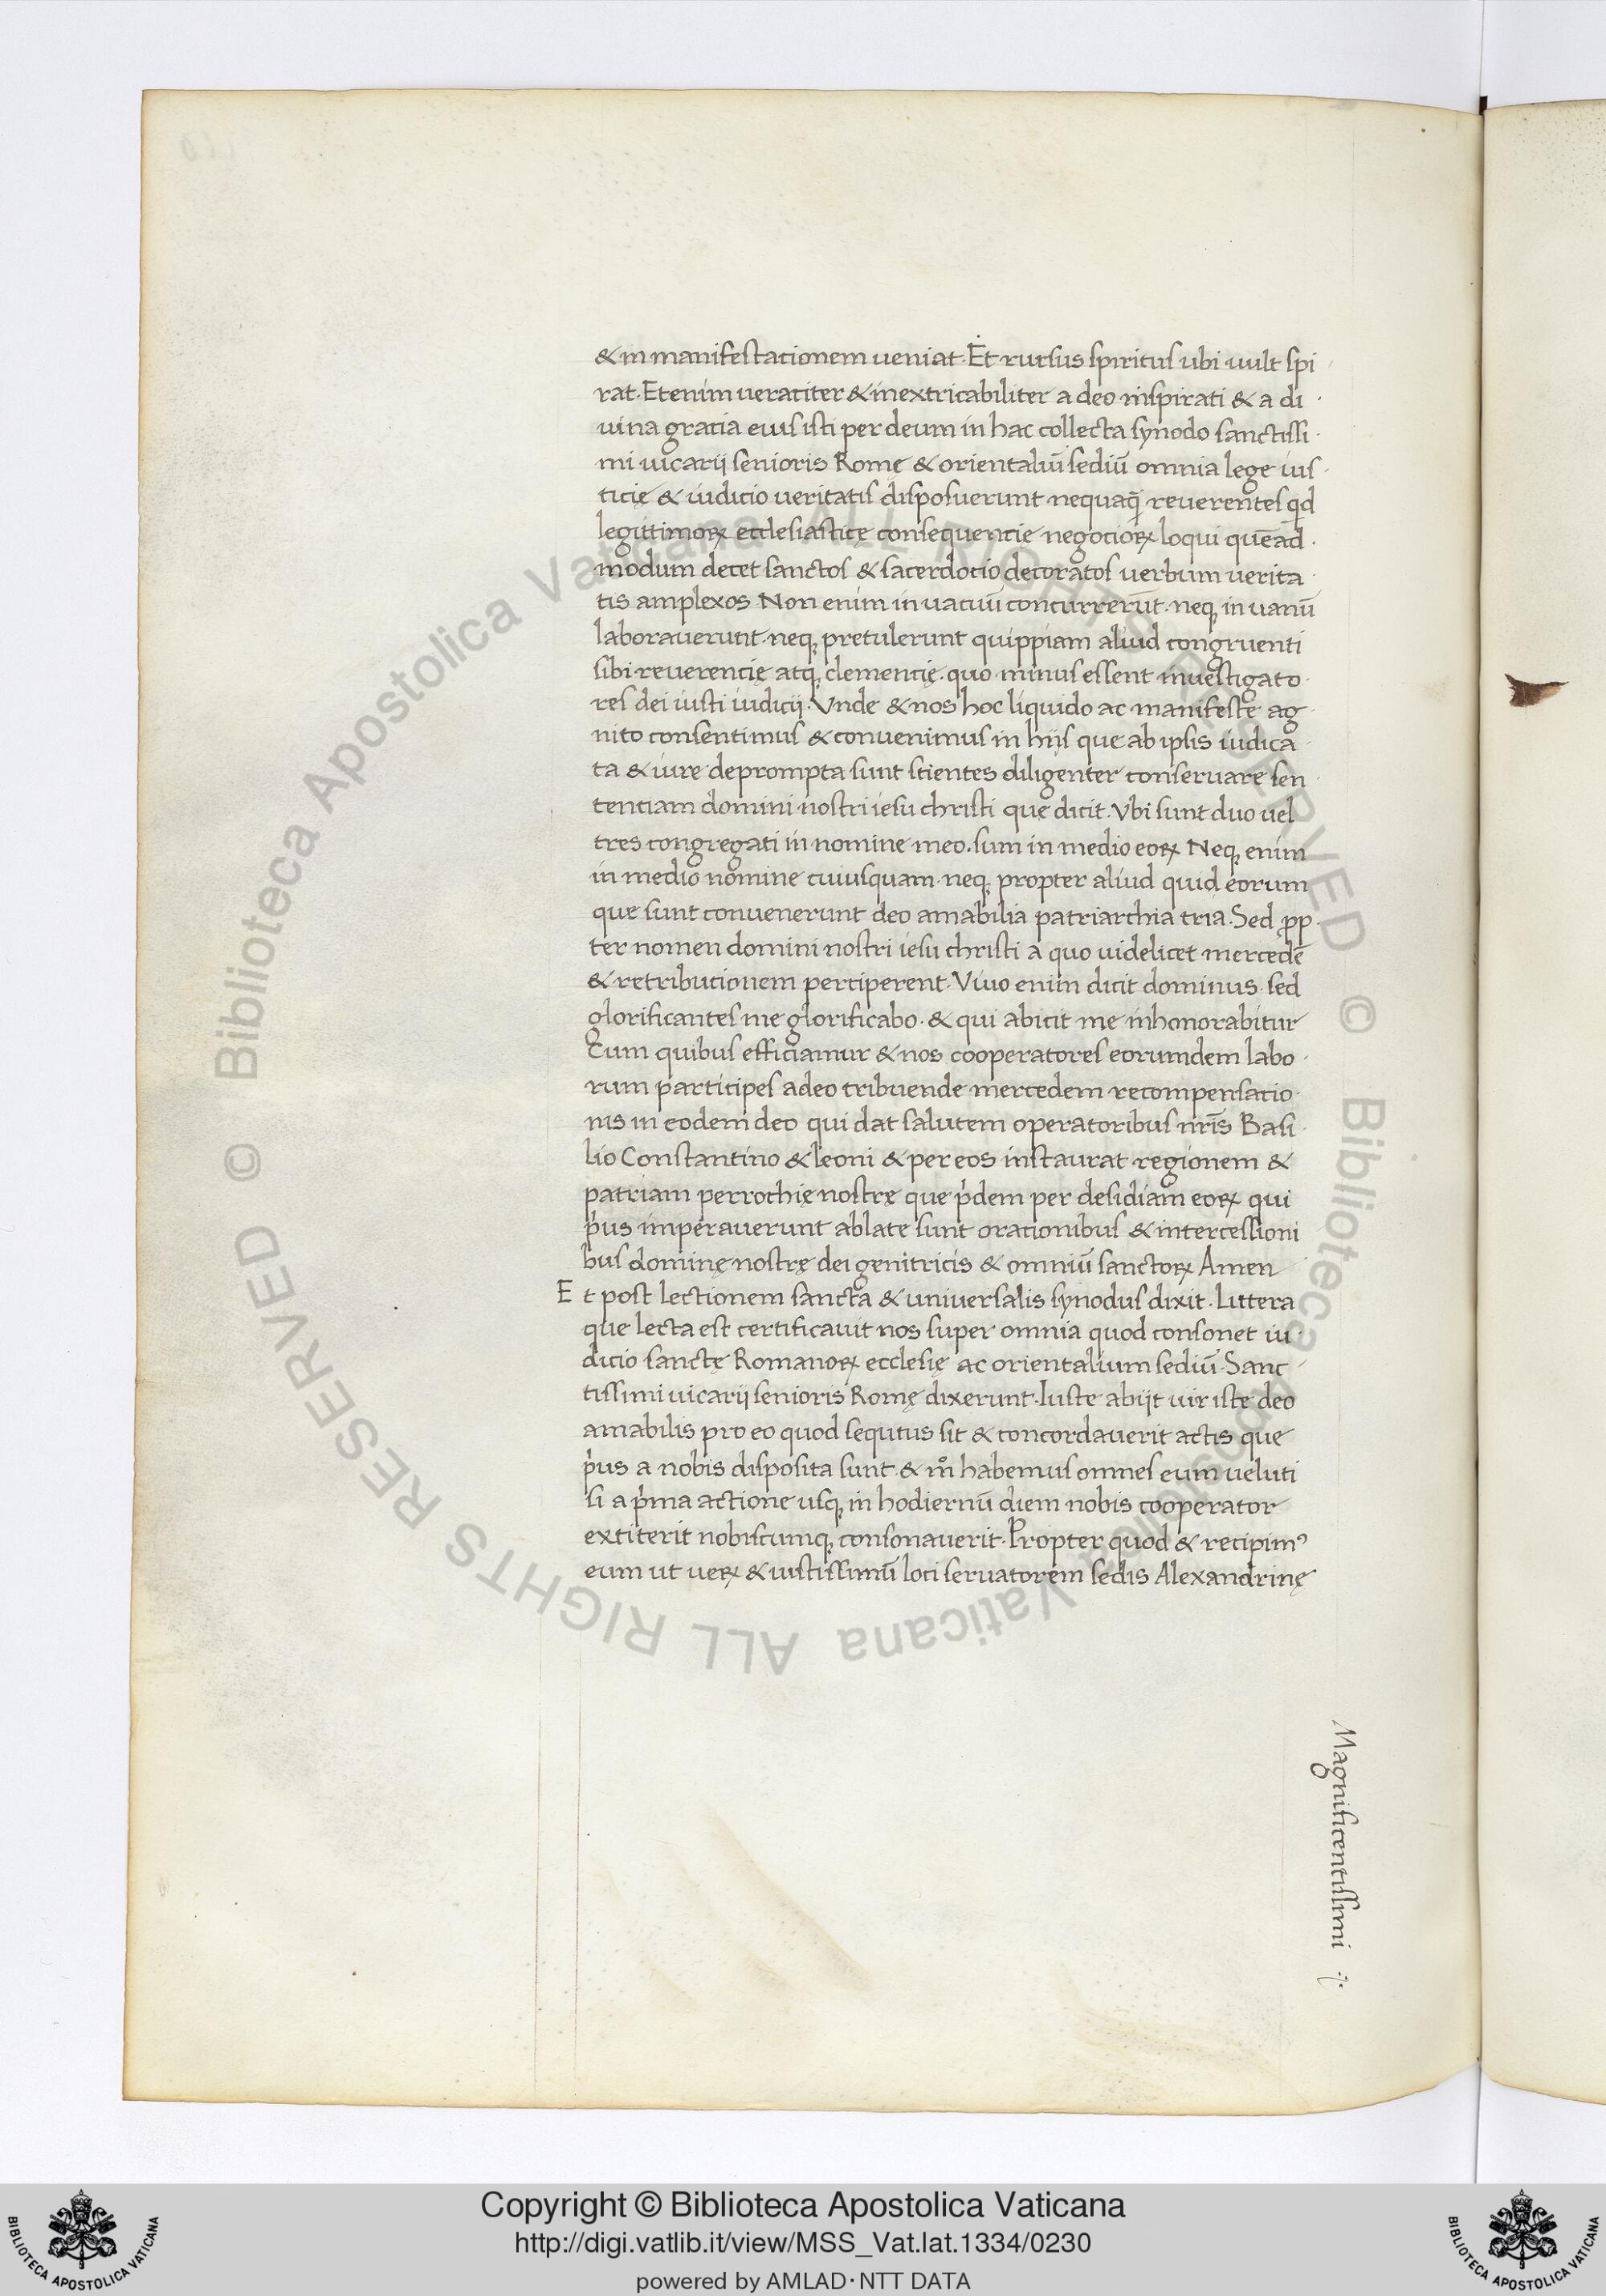 & in manifestacionem ueniat. Et rursus spiritus ubi uult spi
rat. Etenim ueraciter & inextricabiliter a deo inspirati & a di
uina gracia eius isti per deum in hac collecta synodo sanctissi
mi uicarij senioris Romę & orientaliũ sediũ omnia lege ius
ticię & iudicio ueritatis disposuerunt nequaq̃ reuerentes qd̃
legittimoꝝ ecclesiasticę consequencie negocioꝝ loqui quẽad
modum decet sanctos & sacerdocio decoratos uerbum uerita
tis amplexos Non enim in uacuũ concurrerũt. neq; in uanũ
laborauerunt. neq; pretulerunt quippiam aliud congruenti
sibi reuerencię atq; clemencię. quo minus essent inuestigato
res dei iusti iudicij. Vnde & nos hoc liquido ac manifeste ag
nito consentimus & conuenimus in hijs que ab ipsis iudica
ta & iure deprompta sunt scientes diligenter conseruare sen
tenciam domini nostri iesu christi que dicit. Vbi sunt duo uel
tres congregati in nomine meo. sum in medio eoꝝ Neq; enim
in medio nomine cuiusquam neq; propter aliud quid eorum
que sunt conuenerunt deo amabilia patriarchia tria. Sed ꝓp
ter nomen domini nostri iesu christi a quo uidelicet mercedẽ
& retribucionem perciperent. Viuo enim dicit dominus sed
glorificantes me glorificabo. & qui abicit me inhonorabitur
Cum quibus efficiamur & nos cooperatores eorumdem labo
rum participes adeo tribuende mercedem recompensacio
nis in eodem deo qui dat salutem operatoribus nr̃is Basi
lio Constantino & leoni & per eos instaurat regionem &
patriam perrochię nostrę que pͥdem per desidiam eoꝝ qui
pͥus imperauerunt ablate sunt oracionibus & intercessioni
bus dominę nostrę dei genitricis & omniũ sanctoꝝ Amen
Et post lectionem sancta & uniuersalis synodus dixit. Littera
que lecta est certificauit nos super omnia quod consonet iu
dicio sanctę Romanoꝝ ecclesię ac orientalium sediũ. Sanc
tissimi uicarij senioris Romę dixerunt. Iuste abijt uir iste deo
amabilis pro eo quod sequtus sit & concordauerit actis que
pͥus a nobis disposita sunt. & mͦ habemus omnes eum ueluti
si a pͥma actione usq; in hodiernũ diem nobis cooperator
extiterit nobiscumq; consonauerit. Propter quod & recipimꝰ
eum ut ueꝝ & iustissimũ loci seruatorem sedis Alexandrinę
Magnificentissimi
© Biblioteca Apostolica Vaticana ALL RIGHTS RESERVED © Biblioteca Apostolica Vaticana ALL RIGHTS RESERVED
Copyright © Biblioteca Apostolica Vaticana
http://digi.vatlib.it/view/MSS_Vat.lat.1334/0230
powered by AMLAD·NTT DATA
BIBLIOTECA APOSTOLICA VATICANA
BIBLIOTECA APOSTOLICA VATICANA